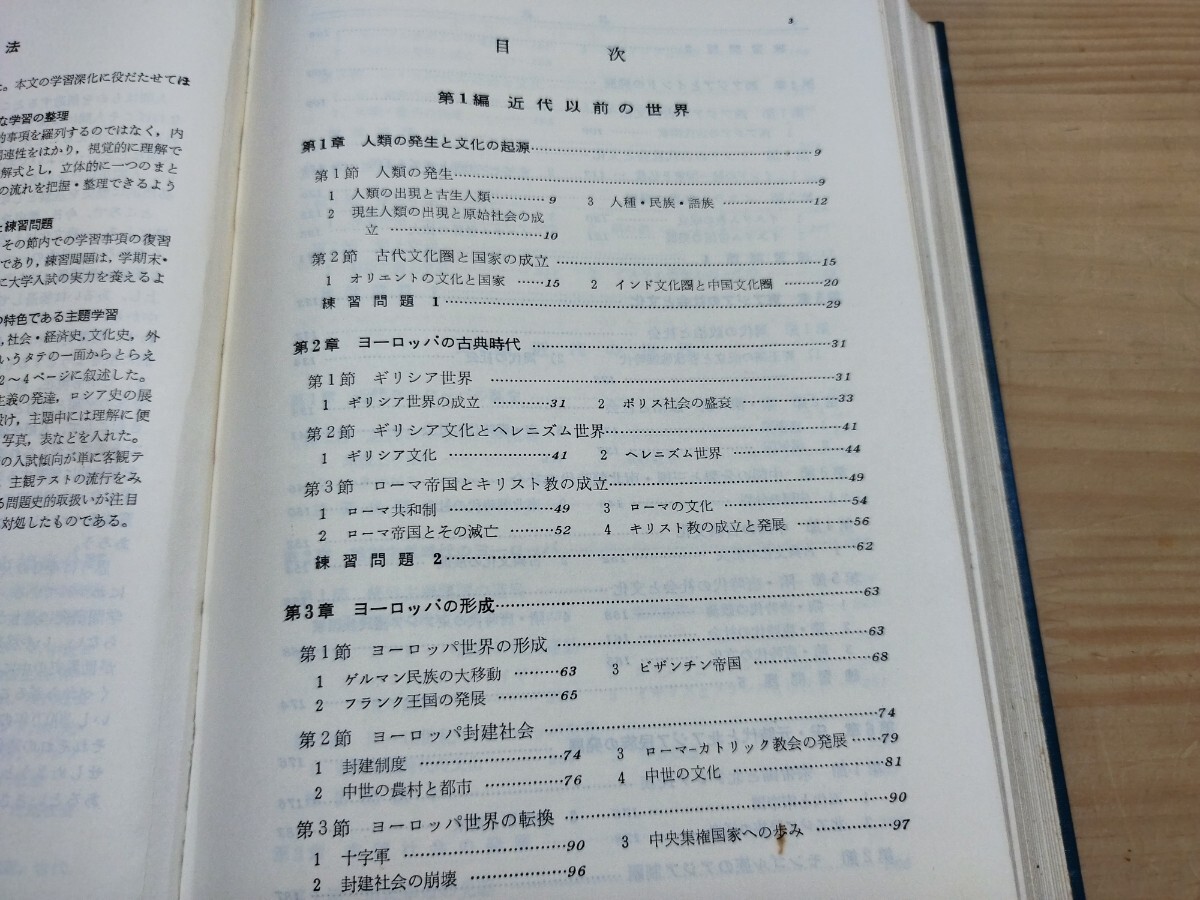 法
。本文の学習深化に役だたせてほ
な学習の整理
的事項を羅列するのではなく，内
関連性をはかり，視覚的に理解で
解式とし，立体的に一つのまと
の流れを把握・整理できるよう
と練習問題
その節内での学習事項の復習
であり，練習問題は，学期末・
に大学入試の実力を養えるよ
の特色である主題学習
，社会・経済史，文化史，外
いうタテの一面からとらえ
2～4ページに叙述した。
主義の発達，ロシア史の展
設け，主題中には理解に便
写真，表などを入れた。
の入試傾向が単に客観テ
主観テストの流行をみ
る問題史的取扱いが注目
対処したものである。
3
目次
第1編 近代以前の世界
第1章 人類の発生と文化の起源……9
第1節 人類の発生……9
1 人類の出現と古生人類……9 3 人種・民族・語族……12
2 現生人類の出現と原始社会の成
立……10
第2節 古代文化圏と国家の成立……15
1 オリエントの文化と国家……15 2 インド文化圏と中国文化圏……20
練習問題 1……29
第2章 ヨーロッパの古典時代……31
第1節 ギリシア世界……31
1 ギリシア世界の成立……31 2 ポリス社会の盛衰……33
第2節 ギリシア文化とヘレニズム世界……41
1 ギリシア文化……41 2 ヘレニズム世界……44
第3節 ローマ帝国とキリスト教の成立……49
1 ローマ共和制……49 3 ローマの文化……54
2 ローマ帝国とその滅亡……52 4 キリスト教の成立と発展……56
練習問題 2……62
第3章 ヨーロッパの形成……63
第1節 ヨーロッパ世界の形成……63
1 ゲルマン民族の大移動……63 3 ビザンチン帝国……68
2 フランク王国の発展……65
第2節 ヨーロッパ封建社会……74
1 封建制度……74 3 ローマ-カトリック教会の発展……79
2 中世の農村と都市……76 4 中世の文化……81
第3節 ヨーロッパ世界の転換……90
1 十字軍……90 3 中央集権国家への歩み……97
2 封建社会の崩壊……96